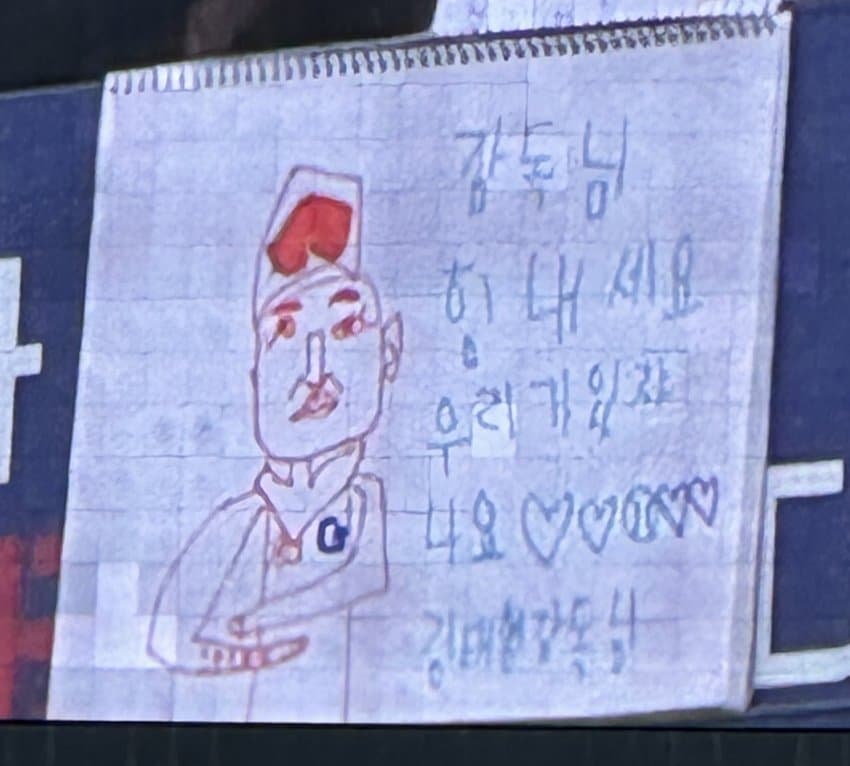 감독님
힘내세요
우리가있잖
나요♡♡♡♡♡
김태형감독님